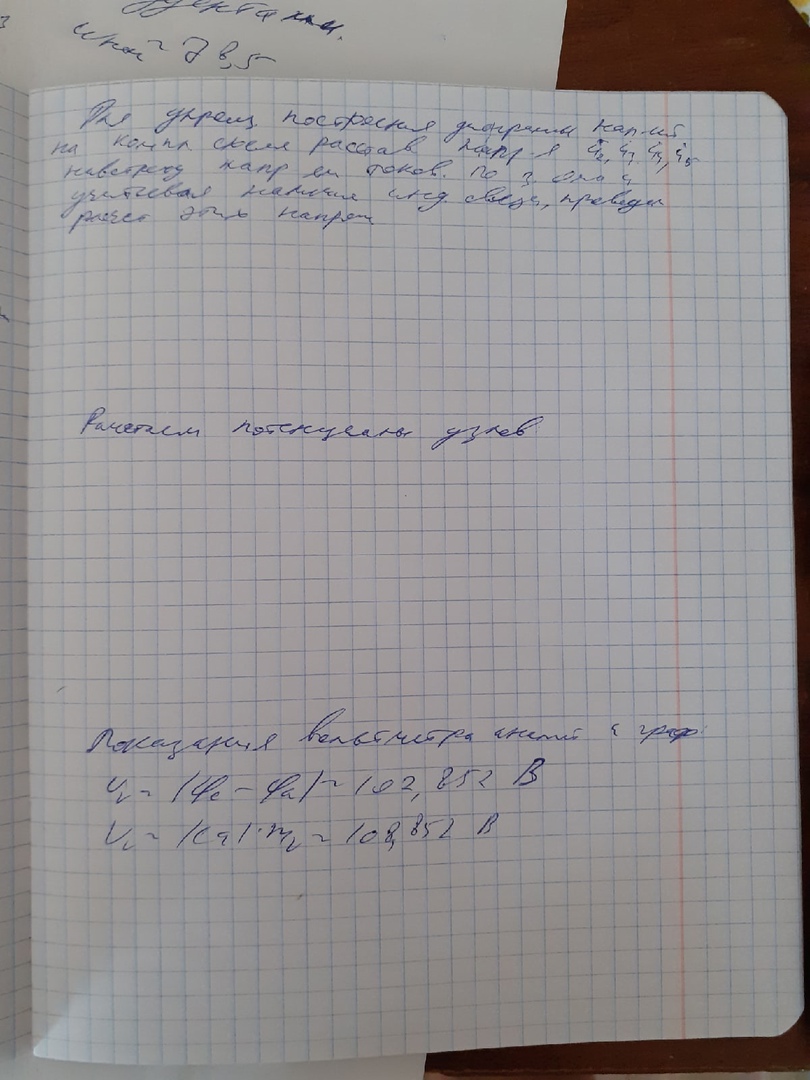 Для упрощ построения диаграммы нап-ий
на компл схеме расстав напр-я U̇₂, U̇₃ U̇₄, U̇₅
навстречу напр ям токов. По з Ома и
учитывая наличие инд связи, проведем
расчет этих напряж
Рассчитаем потенциалы узлов
Показания вольтметра аналит и граф:
Uᵥ = |φc − φa| = 102,852 В
Uᵥ = |ca|·mᵤ = 108,852 В